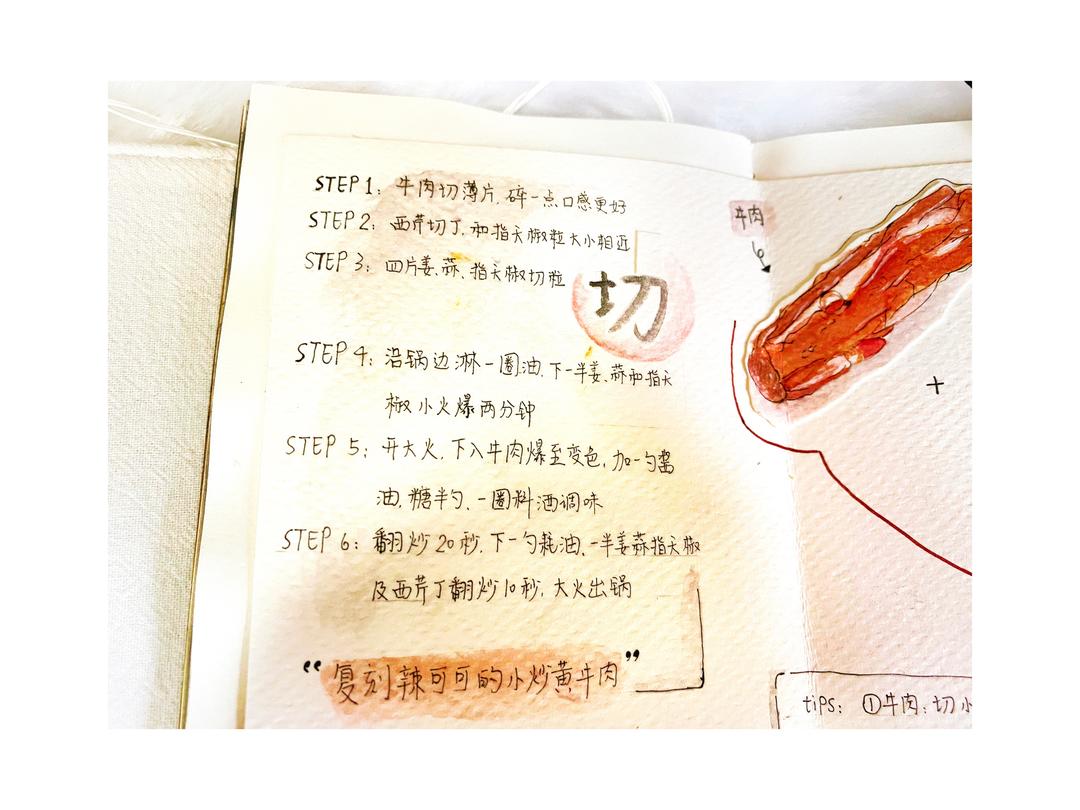 STEP 1: 牛肉切薄片,碎一点口感更好
STEP 2: 西芹切丁,和指天椒粒大小相近
STEP 3: 四片姜、蒜、指天椒切粒
切
STEP 4: 沿锅边淋一圈油,下一半姜、蒜和指天
椒小火爆两分钟
STEP 5: 开大火,下入牛肉爆至变色,加一勺酱
油,糖半勺、一圈料酒调味
STEP 6: 翻炒20秒,下一勺耗油、一半姜蒜指天椒
及西芹丁翻炒10秒,大火出锅
“复刻辣可可的小炒黄牛肉”
牛肉
+
tips: ①牛肉:切小